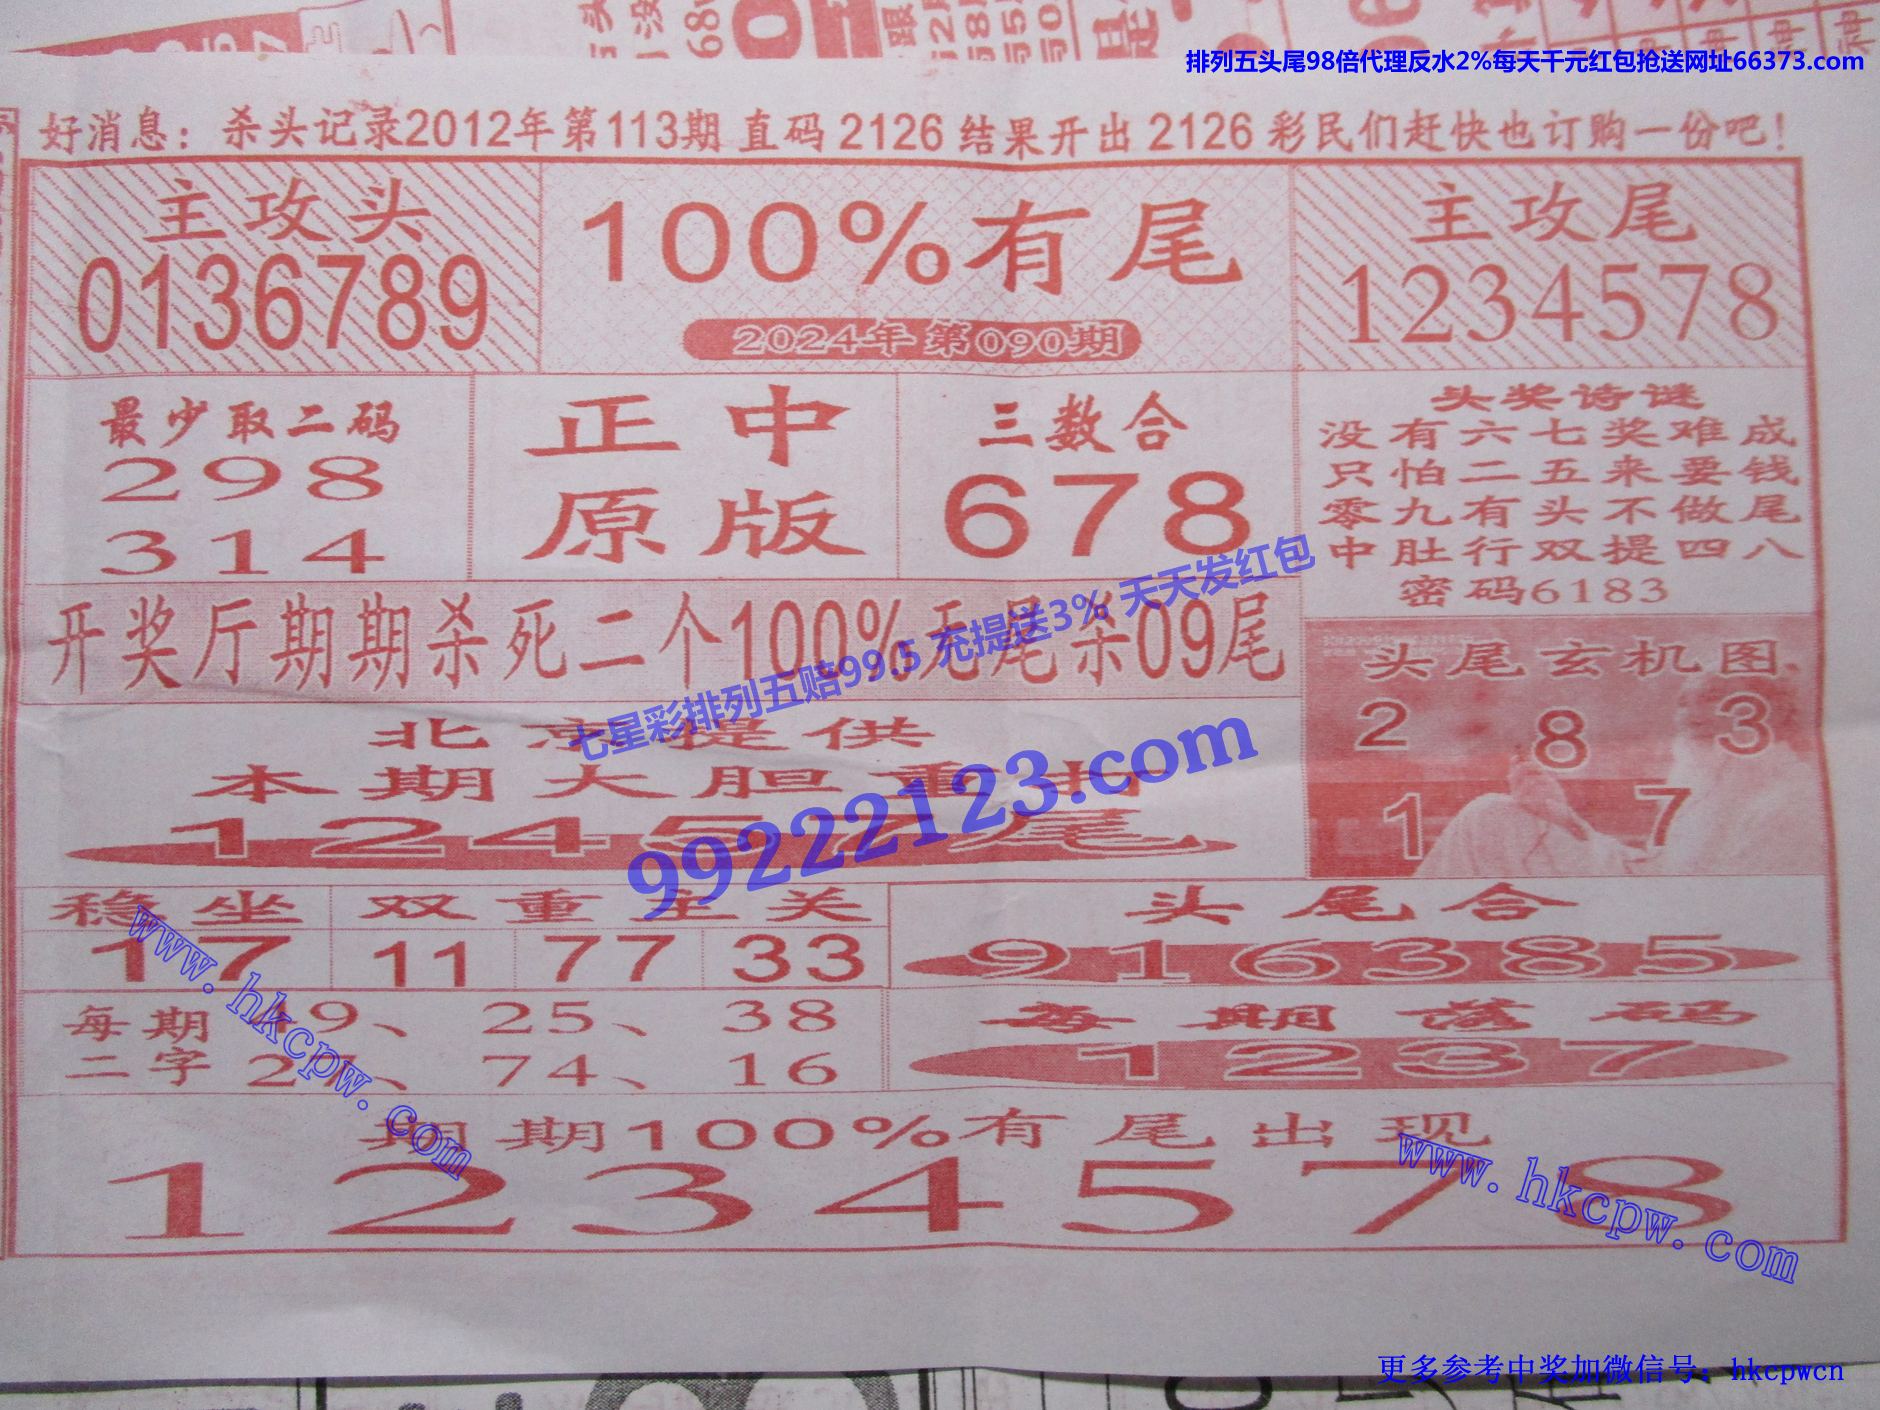 排列五头尾98倍代理反水2%每天千元红包抢送网址66373.com
好消息：杀头记录2012年第113期直码2126结果开出2126彩民们赶快也订购一份吧！
主攻头
0136789
100%有尾
2024年第090期
主攻尾
1234578
最少取二码
298
314
正中
原版
三数合
678
头奖诗谜
没有六七奖难成
只怕二五来要钱
零九有头不做尾
中肚行双提四八
密码6183
开奖厅期期杀死二个100%无尾杀09尾
七星彩排列五赔99.5 充提送3% 天天发红包
99222123.com
头尾玄机图
2 8 3
1 7
北京提供
本期大胆重出
12457尾
稳坐
17
双重主关
11 77 33
头尾合
916385
每期二字
49、25、38
27、74、16
每期落码
1237
期期100%有尾出现
1234578
www.hkcpw.com
www.hkcpw.com
更多参考中奖加微信号：hkcpwcn